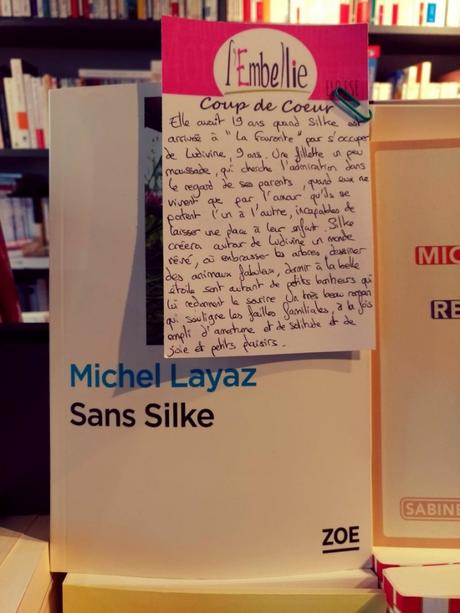 l'Embellie
Coup de Coeur
Elle avait 19 ans quand Silke est
arrivée à "La Favorite" pour s'occuper
de Ludivine, 9 ans. Une fillette un peu
maussade, qui cherche l'admiration dans
le regard de ses parents, quand eux ne
vivent que par l'amour qu'ils se
portent l'un à l'autre, incapables de
laisser une place à leur enfant. Silke
créera autour de Ludivine un monde
rêvé, où embrasser les arbres, dessiner
des animaux fabuleux, dormir à la belle
étoile sont autant de petits bonheurs qui
lui redonnent le sourire. Un très beau roman
qui souligne les failles familiales, à la fois
empli d'amertume et de solitude et de
joie et petits plaisirs.
Michel Layaz
Sans Silke
ZOE
MIC
RE
SABINE